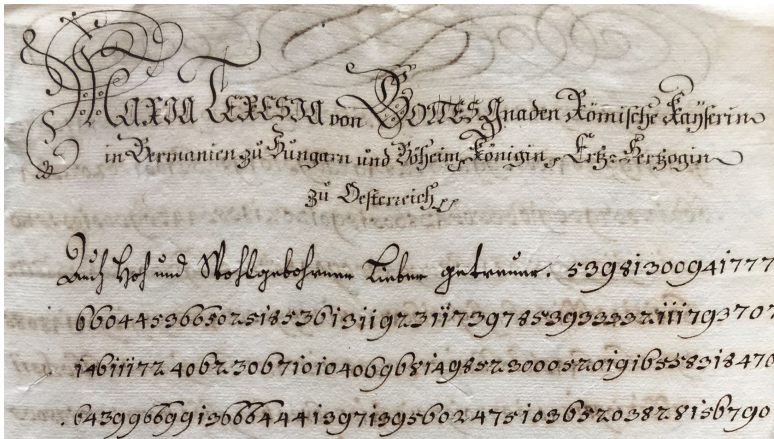 MARIA TERESIA von GOTTES Gnaden Römische Kayserin
in Germanien zu Hungarn und Böheim Königin, Ertz-Hertzogin
zu Oesterreich
und Wohlgebohrner Lieber getreuer. 53981300941777
6604453665025185361311923117397853933332111793707
1461117240623067101040696814985230005201916558318470
6439966991366644413971395602475103652038281567 90